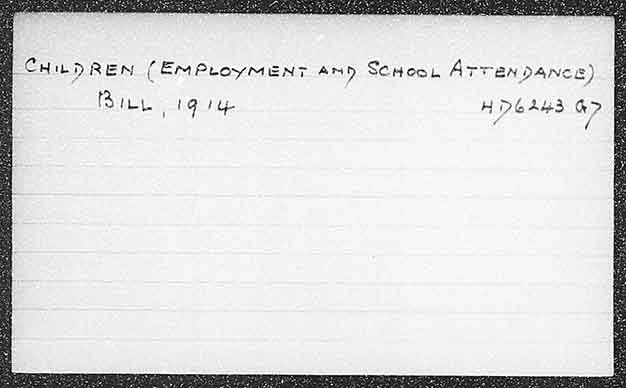 CHILDREN (EMPLOYMENT AND SCHOOL ATTENDANCE)
BILL, 1914 HD6243 G7